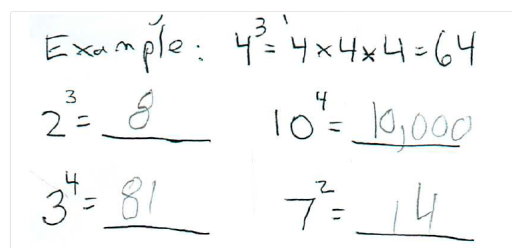 Example: 4³ = 4 × 4 × 4 = 64
2³ = 8 10⁴ = 10,000
3⁴ = 81 7² = 14